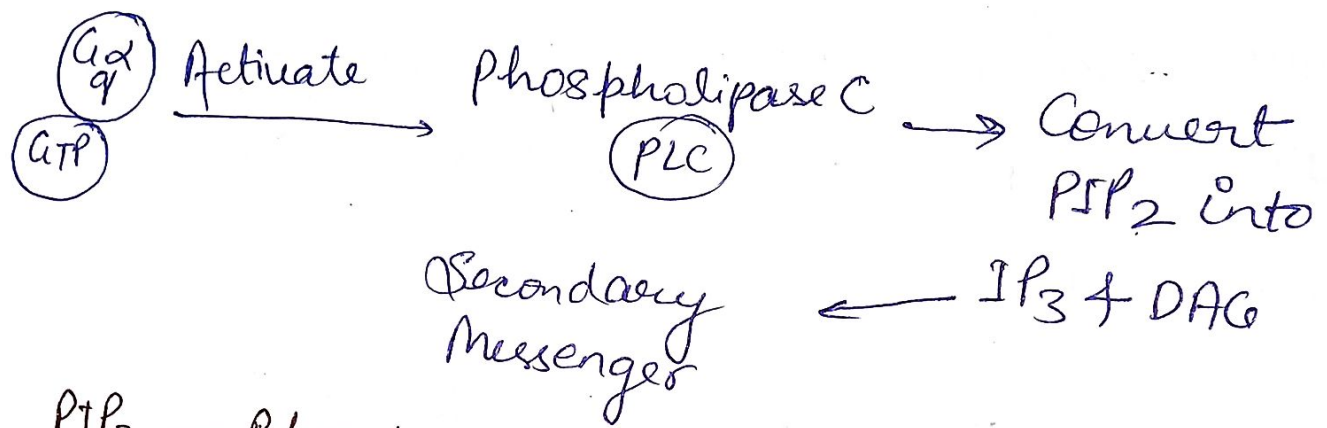 Gα
q
GTP
Activate
Phospholipase C
PLC
Convert
PIP2 into
IP3 & DAG
Secondary
Messenger